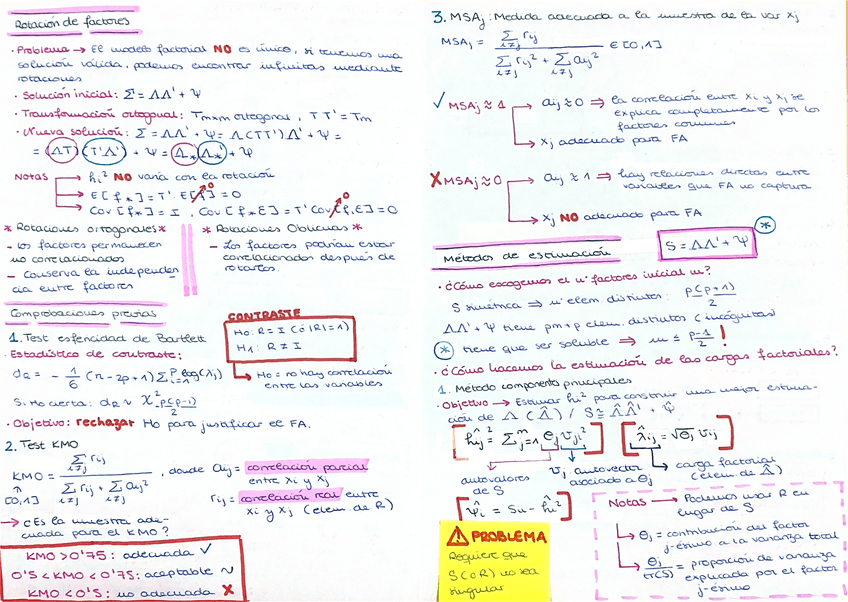 Rotación de factores
· Problema → El modelo factorial NO es único, si tenemos una
solución válida, podemos encontrar infinitas mediante
rotaciones
· Solución inicial: Σ = ΛΛ' + Ψ
· Transformación ortogonal: Tmxm ortogonal, TT' = Tm
· Nueva solución: Σ = ΛΛ' + Ψ = Λ(TT')Λ' + Ψ =
= (ΛT)(T'Λ') + Ψ = Λ* Λ*' + Ψ
Notas → hi² NO varía con la rotación
→ E[f*] = T' · E[f] = 0
→ Cov[f*] = I, Cov[f*E] = T' Cov[f,E] = 0
* Rotaciones ortogonales *
- Los factores permanecen
no correlacionados
- Conserva la independen
cia entre factores
* Rotaciones Oblicuas *
- Los factores podrían estar
correlacionados después de
rotarlos.
Comprobaciones previas
1. Test esfericidad de Bartlett
· Estadístico de contraste:
dR = - 1/6 (n-2p+1) Σ i=1 p log(λj)
Si Ho cierta: dR ~ χ² p(p-1)/2
CONTRASTE
Ho: R = I (ó |R| = 1)
H1: R ≠ I
→ Ho = no hay correlación
entre las variables
· Objetivo: rechazar Ho para justificar el FA.
2. Test KMO
KMO = Σ i≠j rij / Σ i≠j rij² + Σ i≠j aij² , donde aij = correlación parcial
entre xi y xj
[0,1]
rij = correlación real entre
xi y xj (elem. de R)
→ ¿Es la muestra ade-
cuada para el KMO?
KMO > 0'75: adecuada ✓
0'5 < KMO < 0'75: aceptable ~
KMO < 0'5: no adecuada X
3. MSAj: Medida adecuada a la muestra de la var xj
MSAj = Σ i≠j rij / Σ i≠j rij² + Σ i≠j aij² ∈ [0,1]
✓ MSAj ≈ 1 → aij ≈ 0 ⇒ la correlación entre xi y xj se
explica completamente por los
factores comunes
→ xj adecuado para FA
X MSAj ≈ 0 → aij ≈ 1 ⇒ hay relaciones directas entre
variables que FA no captura
→ xj NO adecuado para FA
Métodos de estimación
S = ΛΛ' + Ψ *
· ¿Cómo escogemos el nº factores inicial m?
S simétrica ⇒ nº elem distintos: p(p+1)/2
ΛΛ' + Ψ tiene pm+p elem. distintos (incógnitas)
* tiene que ser soluble ⇒ m ≤ p-1/2 !
· ¿Cómo hacemos la estimación de las cargas factoriales?
1. Método componente principales
· Objetivo → Estimar hi² para construir una mejor estima-
ción de Λ (Λ̂) / S ≅ Λ̂Λ̂' + Ψ̂
[ĥij² = Σ j=1 m θj vji²] [λ̂ij = √θj vij]
autovalores
de S
vj autovector
asociado a θj
carga factorial
(elem de Λ̂)
[Ψ̂i = Sii - ĥi²]
⚠ PROBLEMA
Requiere que
S (o R) no sea
singular
Notas → Podemos usar R en
lugar de S
→ θj = contribución del factor
j-ésimo a la varianza total
→ θj / tr(S) = proporción de varianza
explicada por el factor
j-ésimo